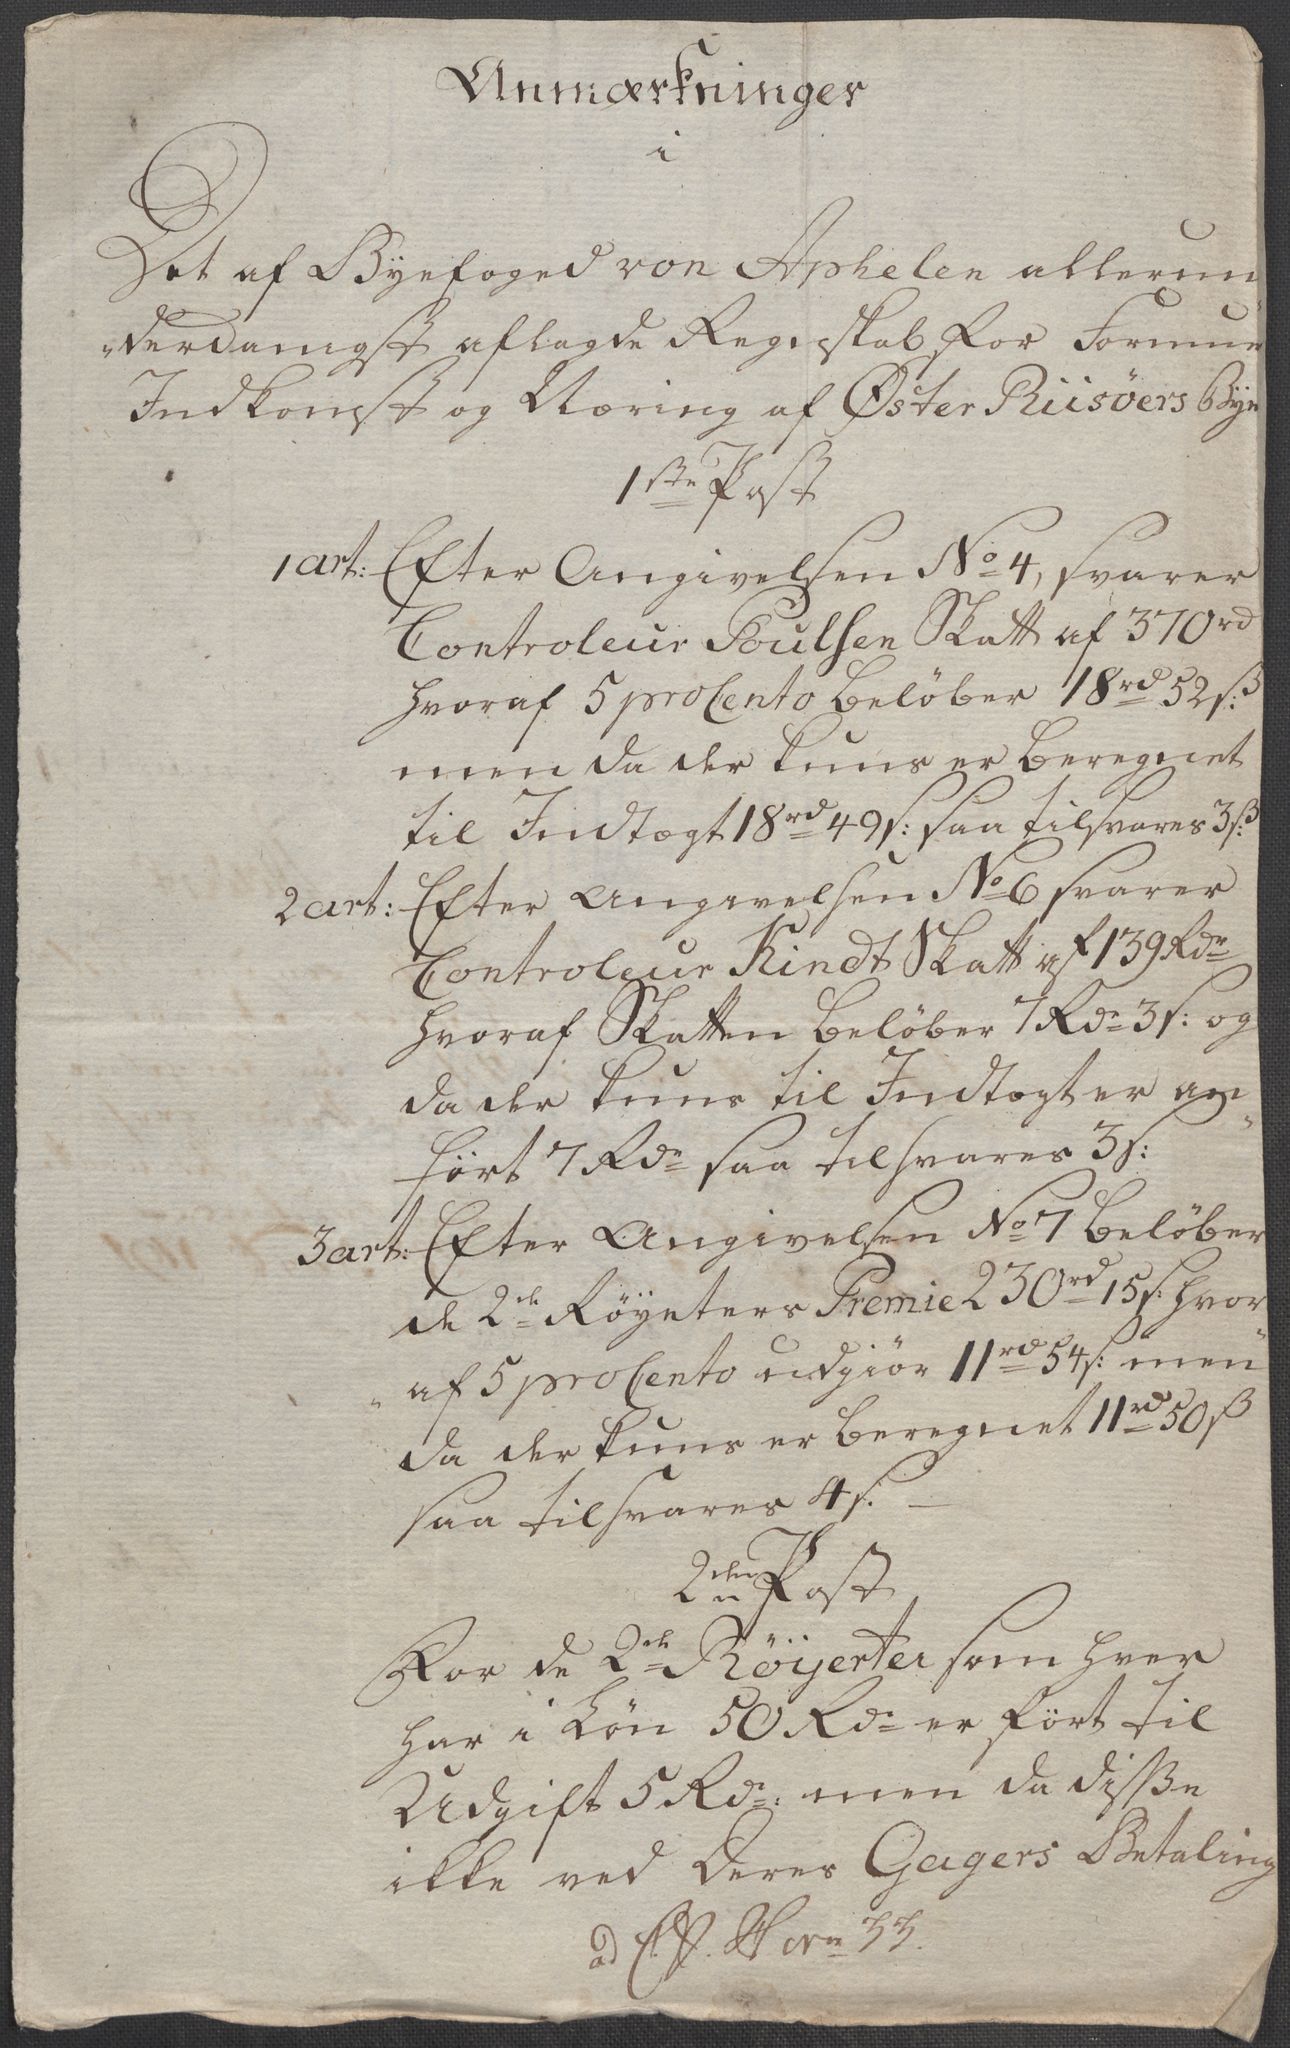 Anmærkninger
i
Det af Byefoged von Aphelen allerun
"derdanigst aflagde Regnskab for Formue
Indkomst og Næring af Øster Riisöers Bye
1ste Post
1 art: Efter Angivelsen No 4, svarer
Controleur Poulsen Skatt af 370 rd
hvoraf 5 proCento belöber 18 rd 52 s:
men da der kuns er beregnet
til Indtægt 18 rd 49 s: saa tilsvares 3 s:
2 art: Efter Angivelsen No 6 svarer
Controleur Kindt Skatt af 139 Rdr
hvoraf Skatten belöber 7 Rdr 3 s: og
da der kuns til Indtægt er an"
fört 7 Rdr saa tilsvares 3 s:
3 art: Efter Angivelsen No 7 belöber
de 2de Röyerters Premie 230 rd 15 s: hvor"
"af 5 proCento udgiör 11 rd 54 s: men
da der kuns er beregnet 11 rd 50 s
saa tilsvares 4 s. —
2den Post
For de 2de Röyerter som hver
har i Lön 50 Rdr er fört til
Udgift 5 Rdr: men da disse
ikke ved deres Gagers Betaling
ad